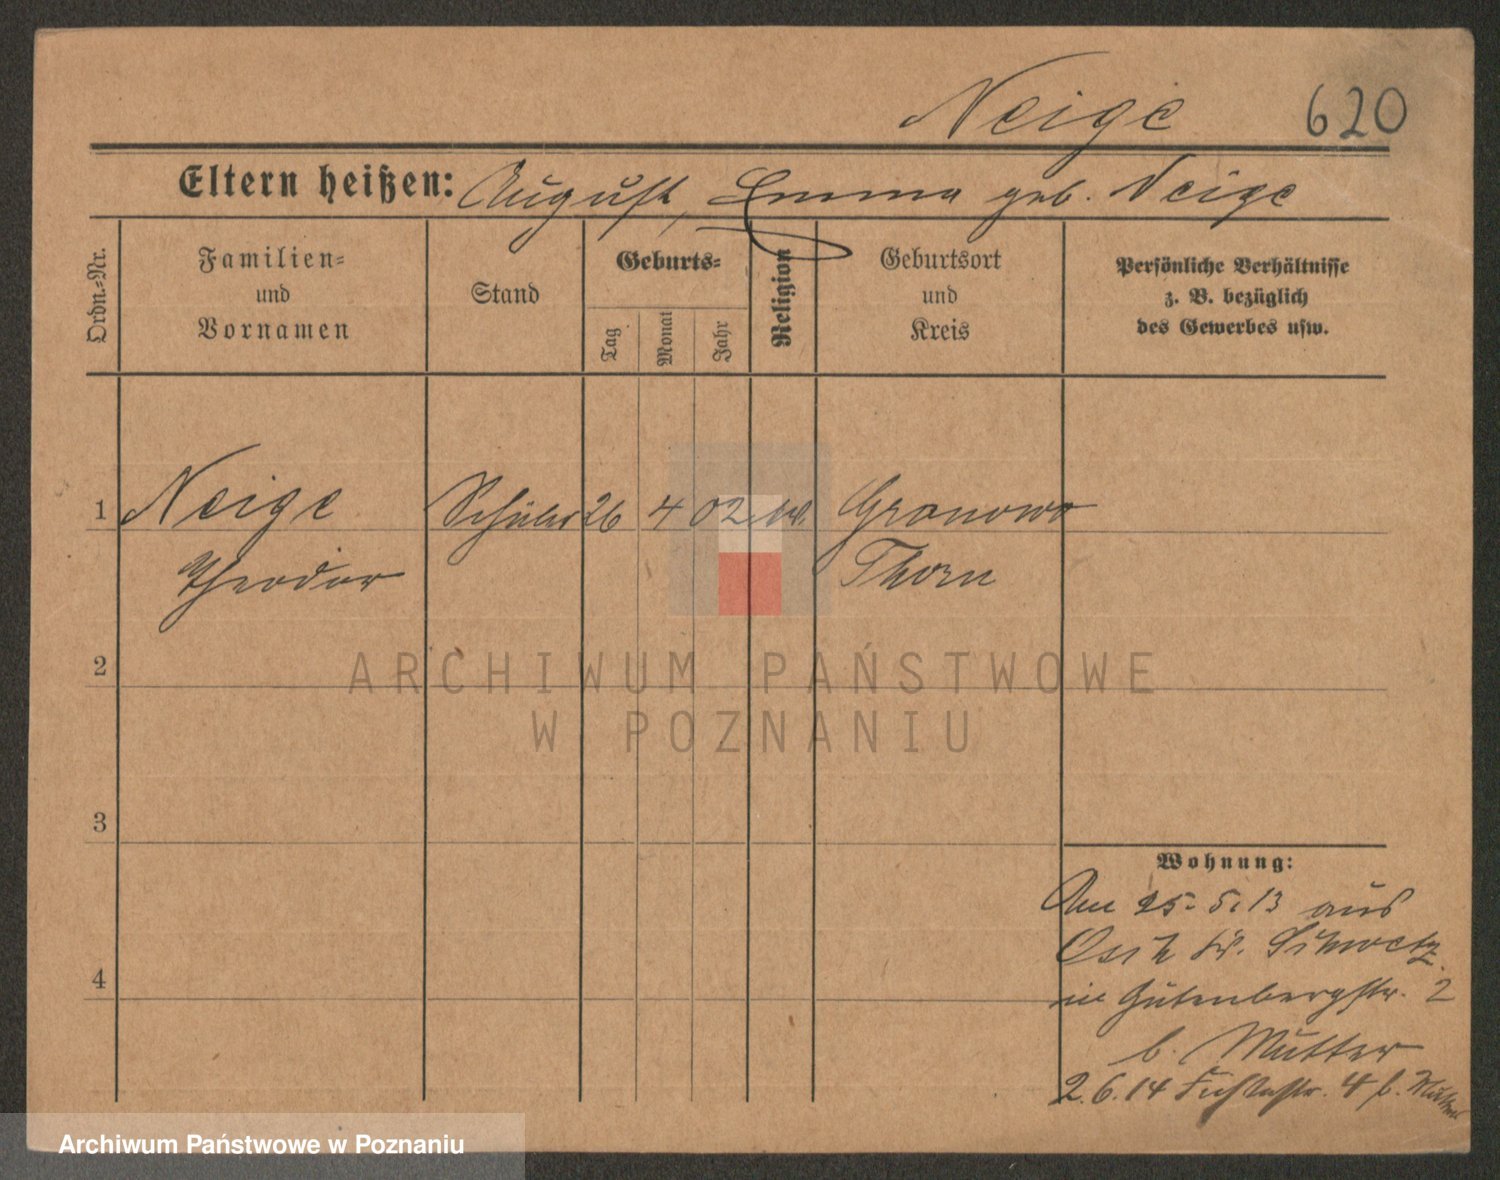 Neige 620
Eltern heißen: August, Emma geb. Neige
Ordn.-Nr.
Familien-
und
Vornamen
Stand
Geburts-
Tag
Monat
Jahr
Religion
Geburtsort
und
Kreis
Persönliche Verhältnisse
z. B. bezüglich
des Gewerbes usw.
1 Neige Schüler 26 4 02 Gronowo
Theodor Thorn
2
3
4
Wohnung:
Am 25. 5. 13 aus
Kr. Schwetz
in Gutenbergstr. 2
b. Mutter
2.6.14 Fichtestr. 4 b. Mutter
ARCHIWUM PAŃSTWOWE
W POZNANIU
Archiwum Państwowe w Poznaniu